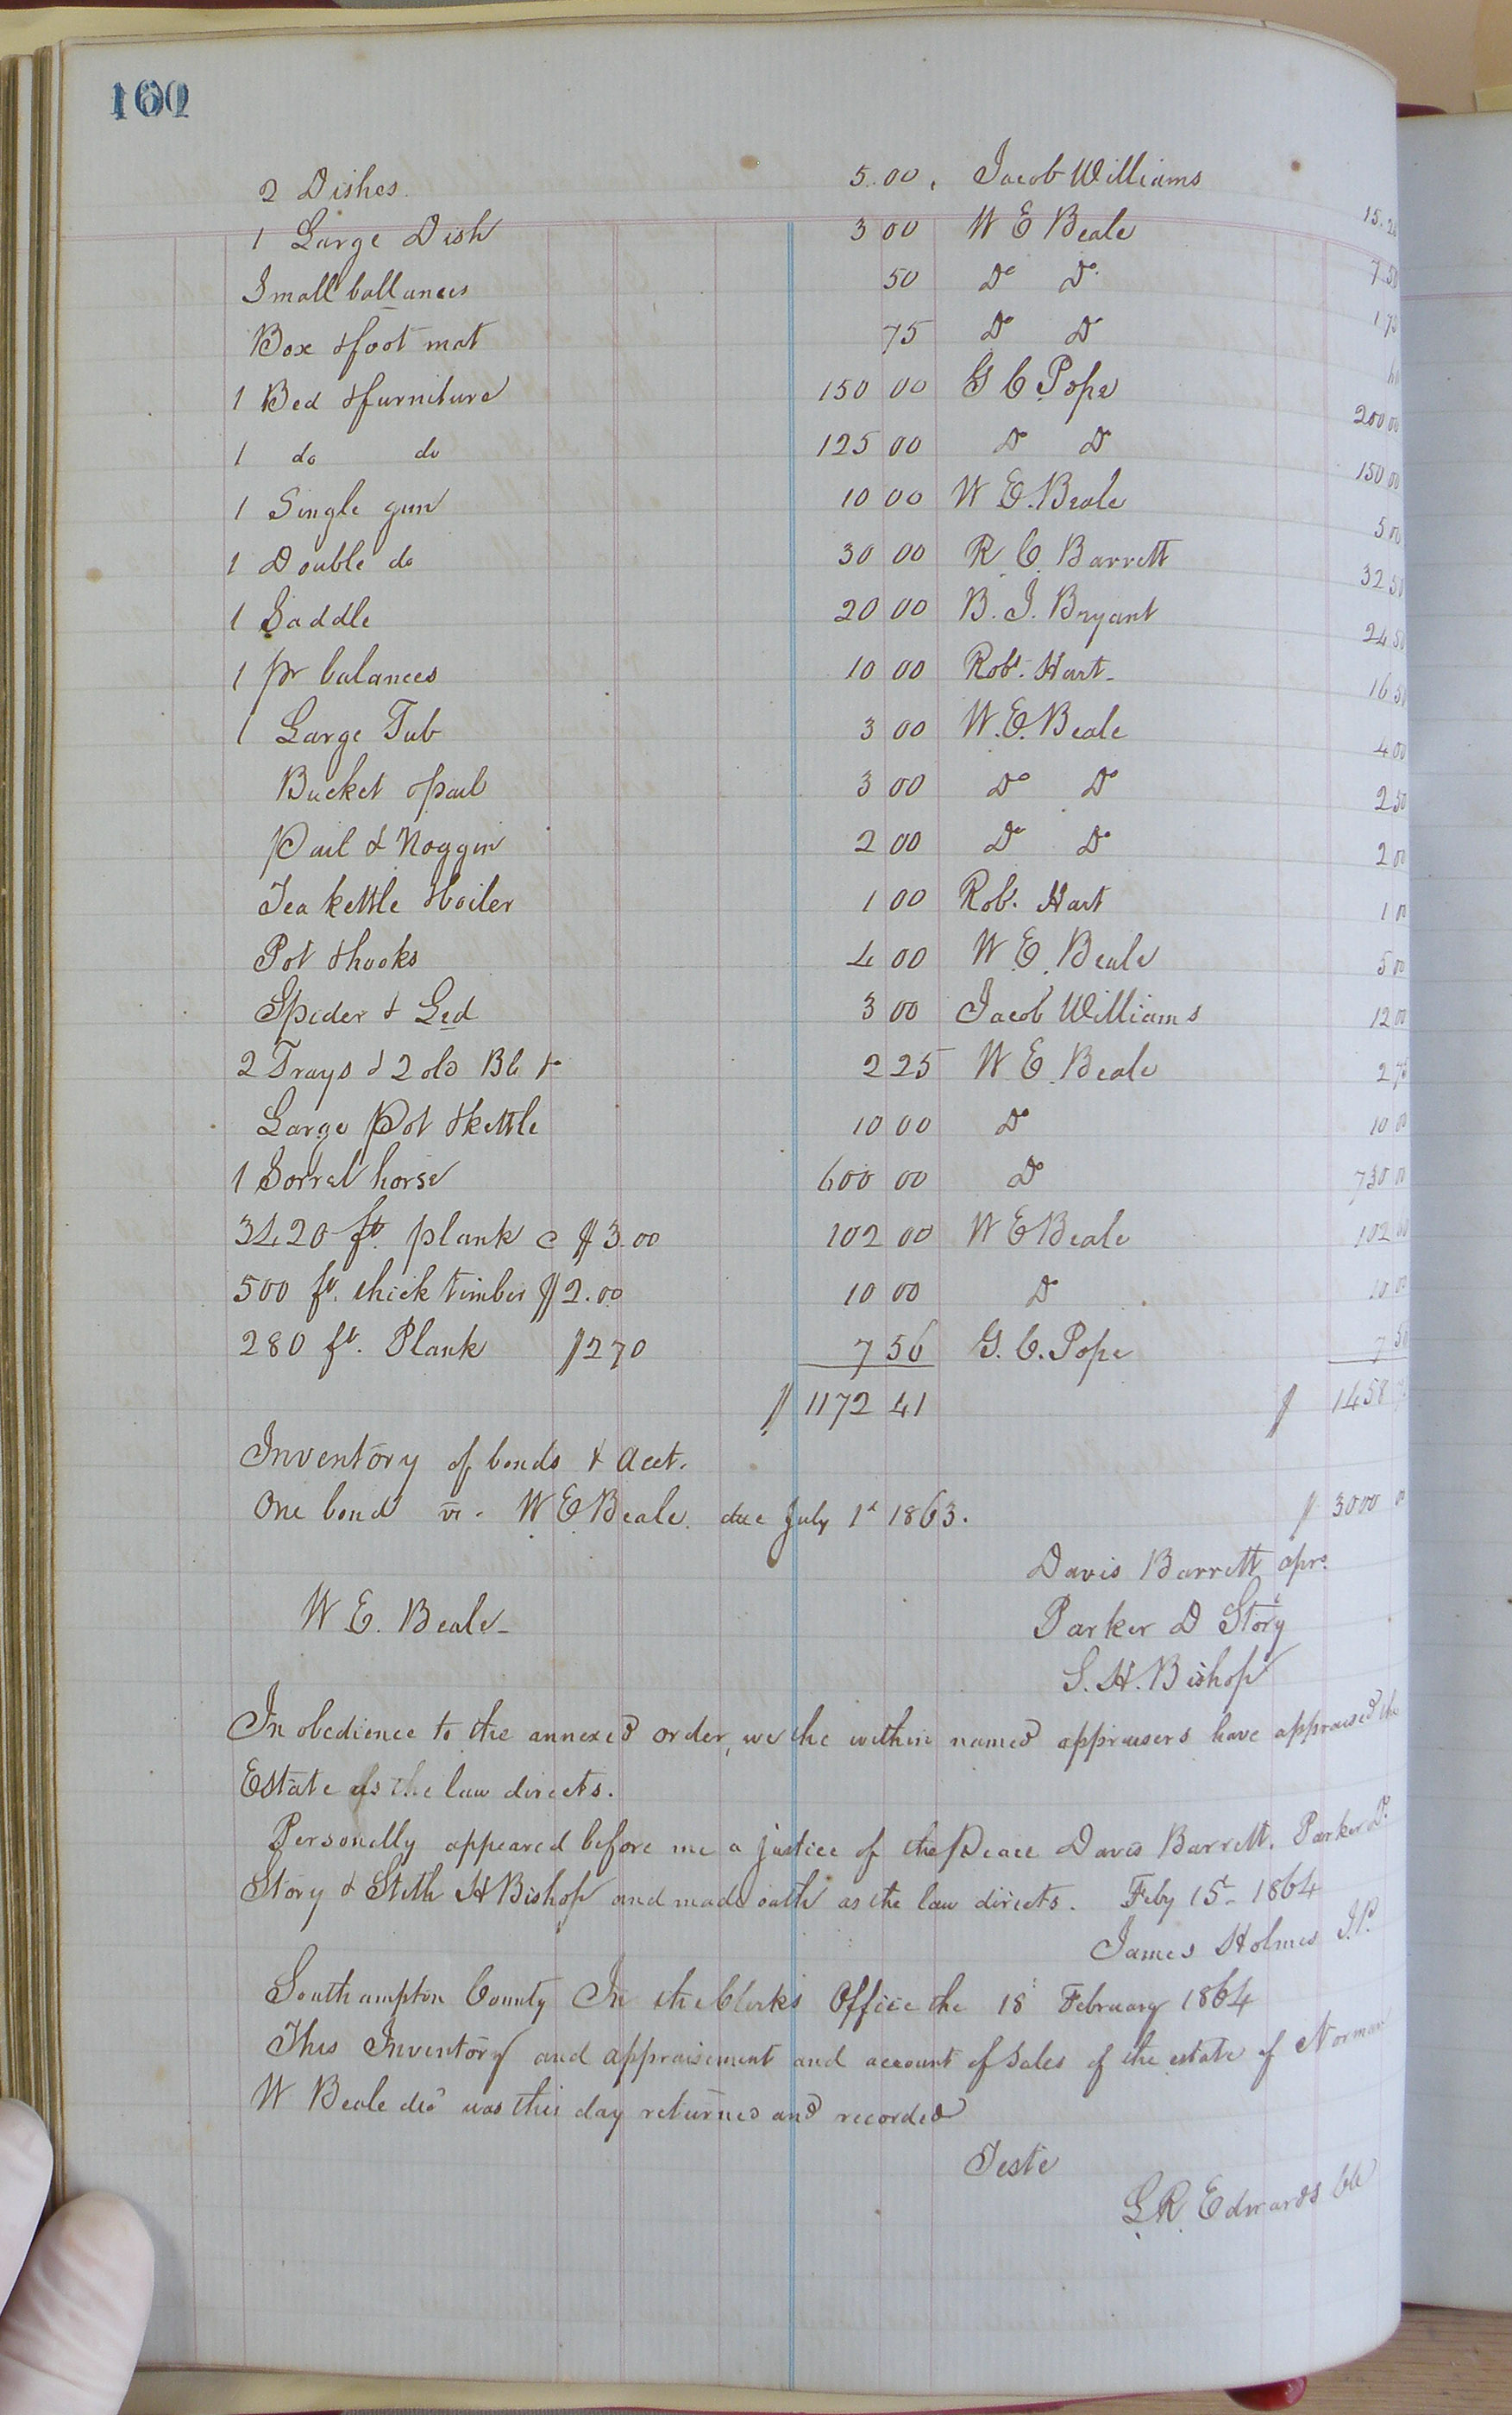 160
2 Dishes. 5.00. Jacob Williams
1 Large Dish 3 00 W E Beale 15.
Small ballances 50 Do Do 7 50
Box & foot mat 75 Do Do 1 75
1 Bed & furniture 150 00 G C Pope 200 00
1 do do 125 00 Do Do 150 00
1 Single gun 10 00 W E. Beale 5 00
1 Double do 30 00 R. C. Barrett 32 50
1 Saddle 20 00 B. J. Bryant 24 50
1 pr balances 10 00 Robt. Hart - 16 50
1 Large Tub 3 00 W. E. Beale 4 00
Bucket & pail 3 00 Do Do 2 50
Pail & Noggin 2 00 Do Do 2 00
Tea kettle & boiler 1 00 Robt. Hart 1 00
Pot & hooks 4 00 W. E. Beale 5 00
Spider & Led 3 00 Jacob Williams 12 00
2 Trays & 2 old Bb & 2 25 W. E. Beale 2 75
Large Pot & kettle 10 00 Do 10 00
1 Sorrel horse 600 00 Do 730 00
3420 ft. plank @ $3.00 102 00 W E Beale 102 00
500 ft. thick timber $2.00 10 00 Do 10 00
280 ft. Plank $270 7 56 G. C. Pope 7 50
$1172 41 $ 1458
Inventory of bonds & acct.
One bond vs. W E Beale. due July 1st 1863. $ 3000 00
Davis Barrett aprs
W E. Beale - Parker D Story
S. H. Bishop
In obedience to the annexed order, we the within named appraisers have appraised the
Estate as the law directs.
Personally appeared before me a justice of the Peace Davis Barrett. Parker D.
Story & Stith H Bishop and made oath as the law directs. Feby 15th 1864
James Holmes J.P.
Southampton County In the Clerks Office the 18 February 1864
This Inventory and appraisement and account of Sales of the estate of Norman
W Beale decd was this day returned and recorded
Teste
L R. Edwards Clk